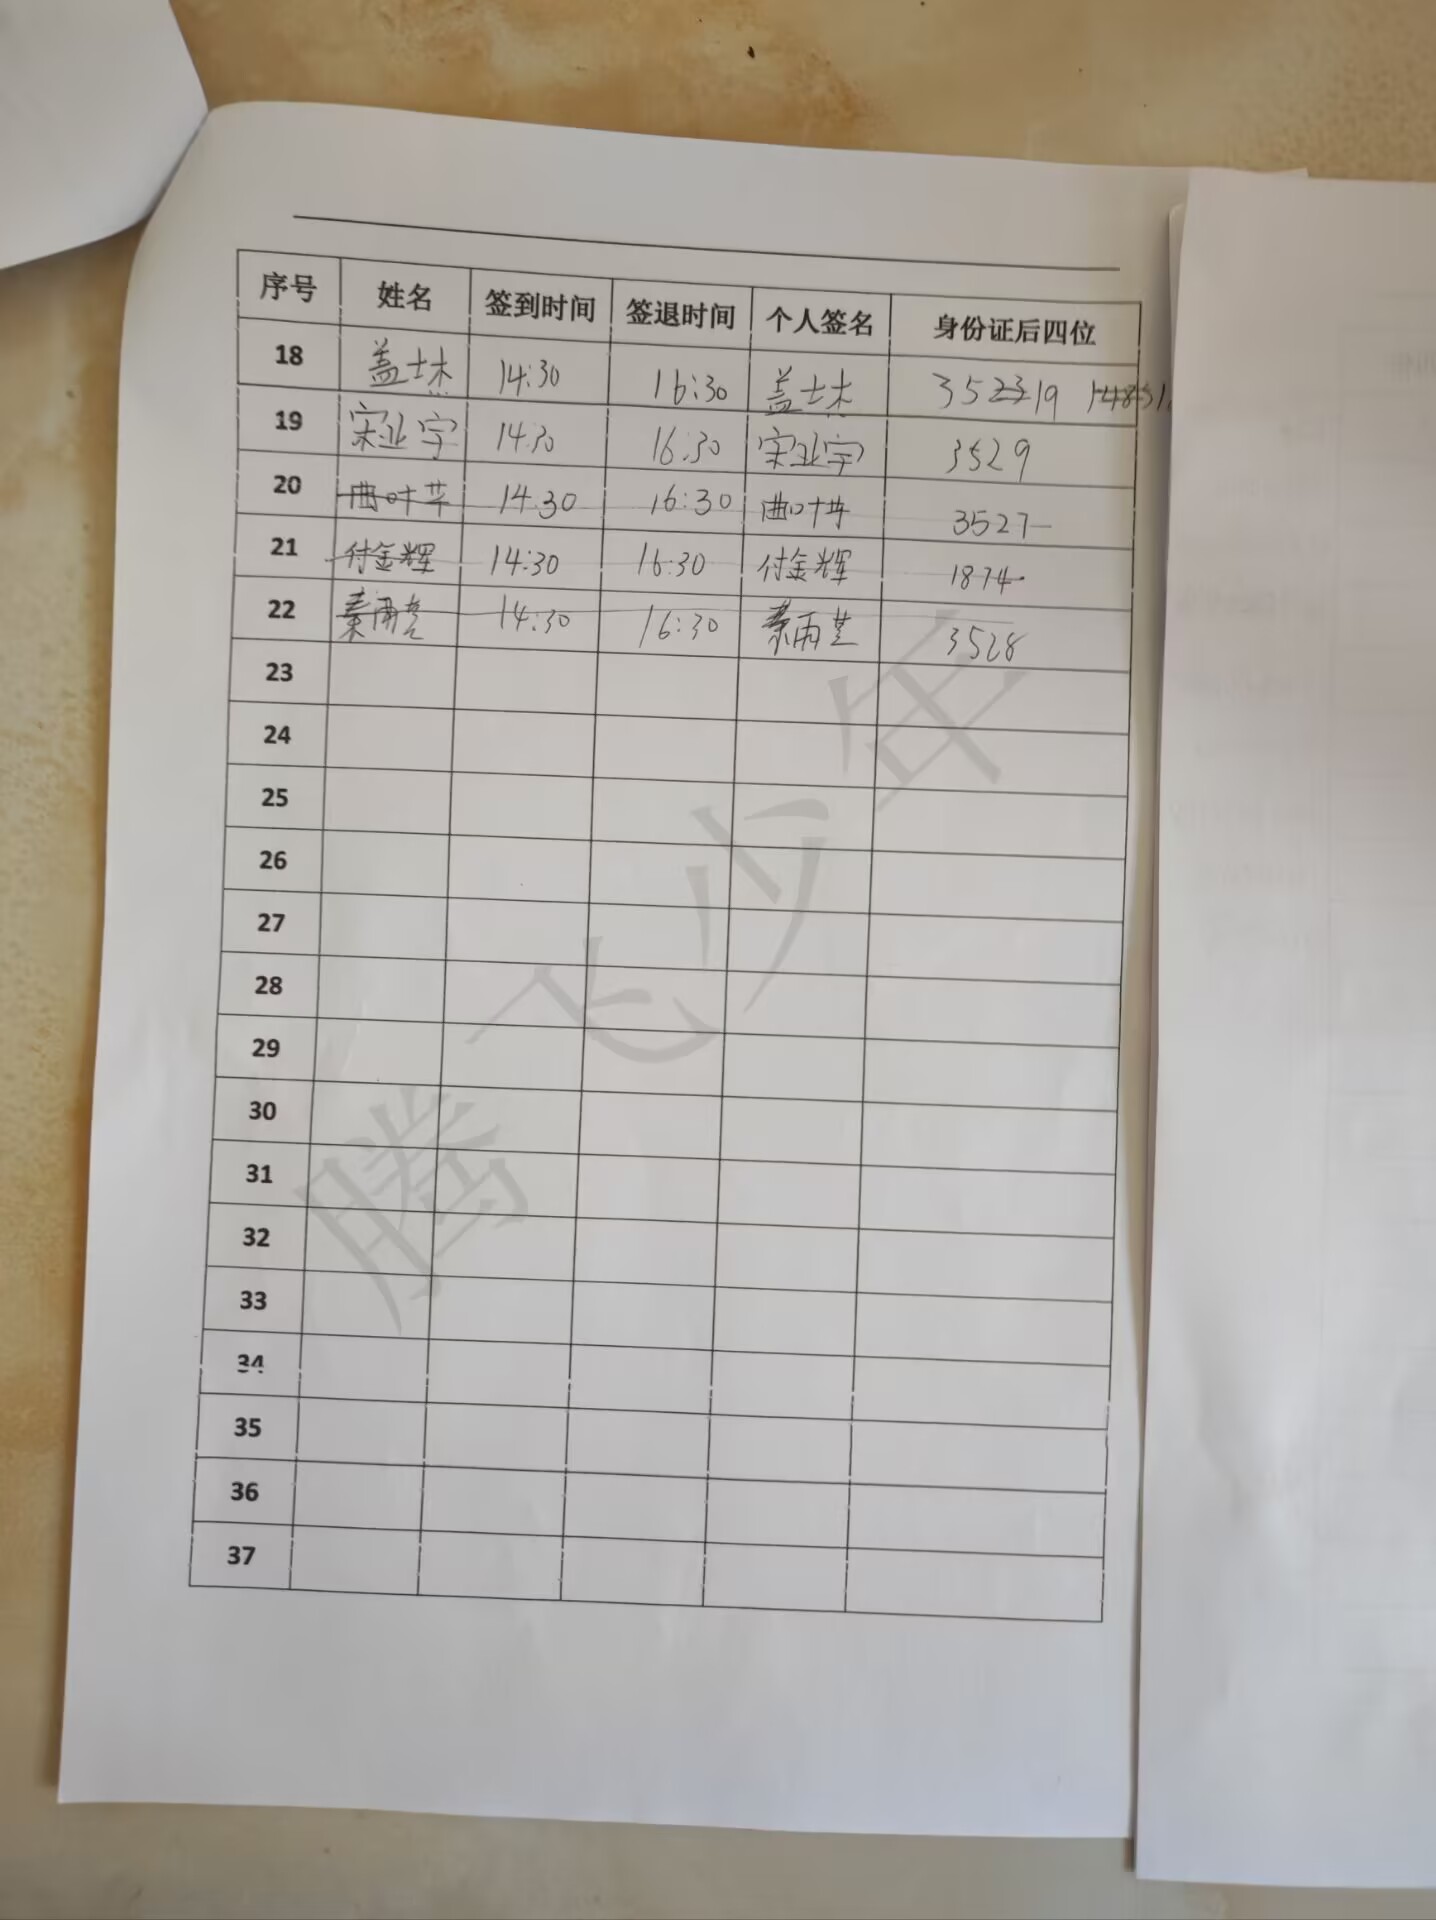 序号 姓名 签到时间 签退时间 个人签名 身份证后四位
18 盖士杰 14:30 16:30 盖士杰 3519
19 宋业宇 14:30 16:30 宋业宇 3529
20 曲叶苹 14:30 16:30 曲叶苹 3527
21 付金辉 14:30 16:30 付金辉 1874
22 秦雨 14:30 16:30 秦雨 3528
23
24
25
26
27
28
29
30
31
32
33
34
35
36
37
腾飞少年